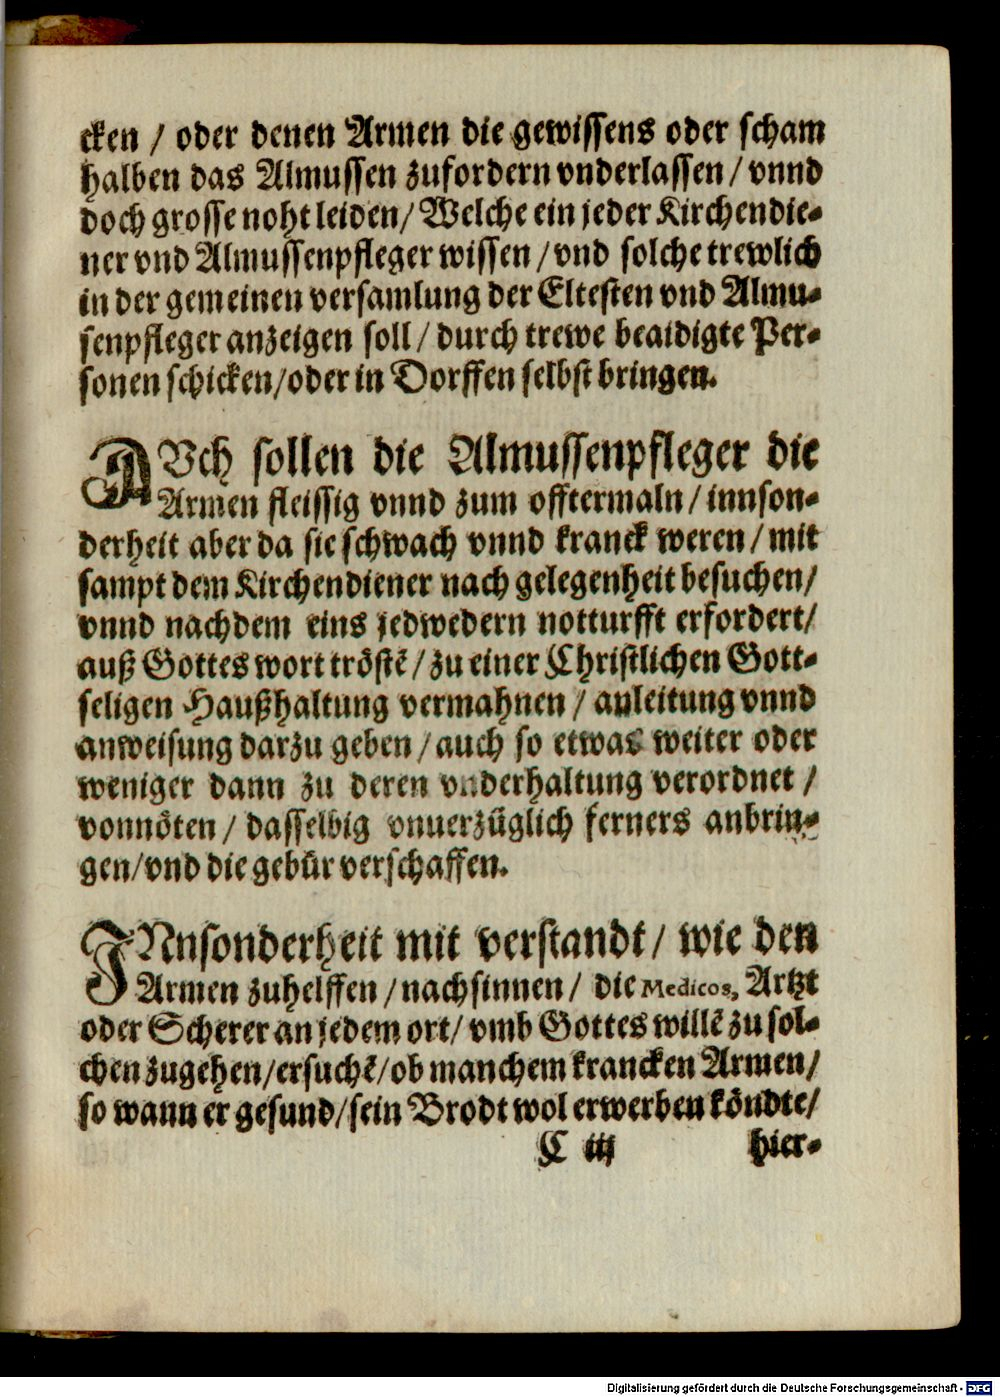 cken / oder denen Armen die gewissens oder scham
halben das Almussen zufordern vnderlassen / vnnd
doch grosse noht leiden / Welche ein jeder Kirchendie-
ner vnd Almussenpfleger wissen / vnd solche trewlich
in der gemeinen versamlung der Eltesten vnd Almu-
senpfleger anzeigen soll / durch trewe beaidigte Per-
sonen schicken / oder in Dorffen selbst bringen.
AVch sollen die Almussenpfleger die
Armen fleissig vnnd zum offtermaln / innson-
derheit aber da sie schwach vnnd kranck weren / mit
sampt dem Kirchendiener nach gelegenheit besuchen /
vnnd nachdem eins jedwedern notturfft erfordert /
auß Gottes wort tröstē / zu einer Christlichen Gott-
seligen Haußhaltung vermahnen / anleitung vnnd
anweisung darzu geben / auch so etwas weiter oder
weniger dann zu deren vnderhaltung verordnet /
vonnöten / dasselbig vnuerzüglich ferners anbrin-
gen / vnd die gebür verschaffen.
INnsonderheit mit verstandt / wie den
Armen zuhelffen / nachsinnen / die Medicos, Artzt
oder Scherer an jedem ort / vmb Gottes willē zu sol-
chen zugehen / ersuchē / ob manchem krancken Armen /
so wann er gesund / sein Brodt wol erwerben köndte /
C iij hier-
Digitalisierung gefördert durch die Deutsche Forschungsgemeinschaft - DFG